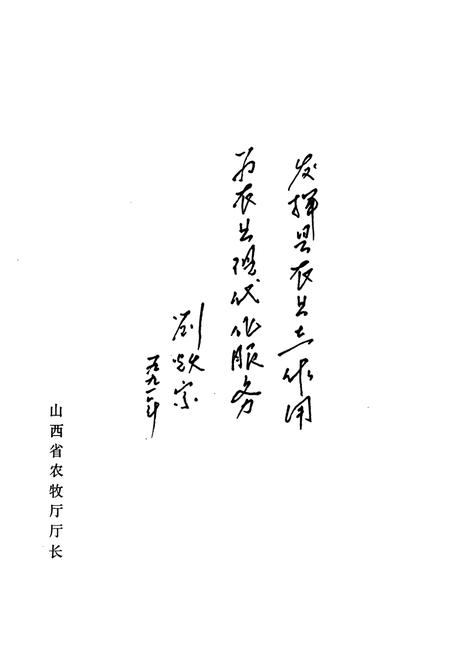 发挥县农业志作用
为农业现代化服务
刘焕宗
一九九一年
山西省农牧厅厅长